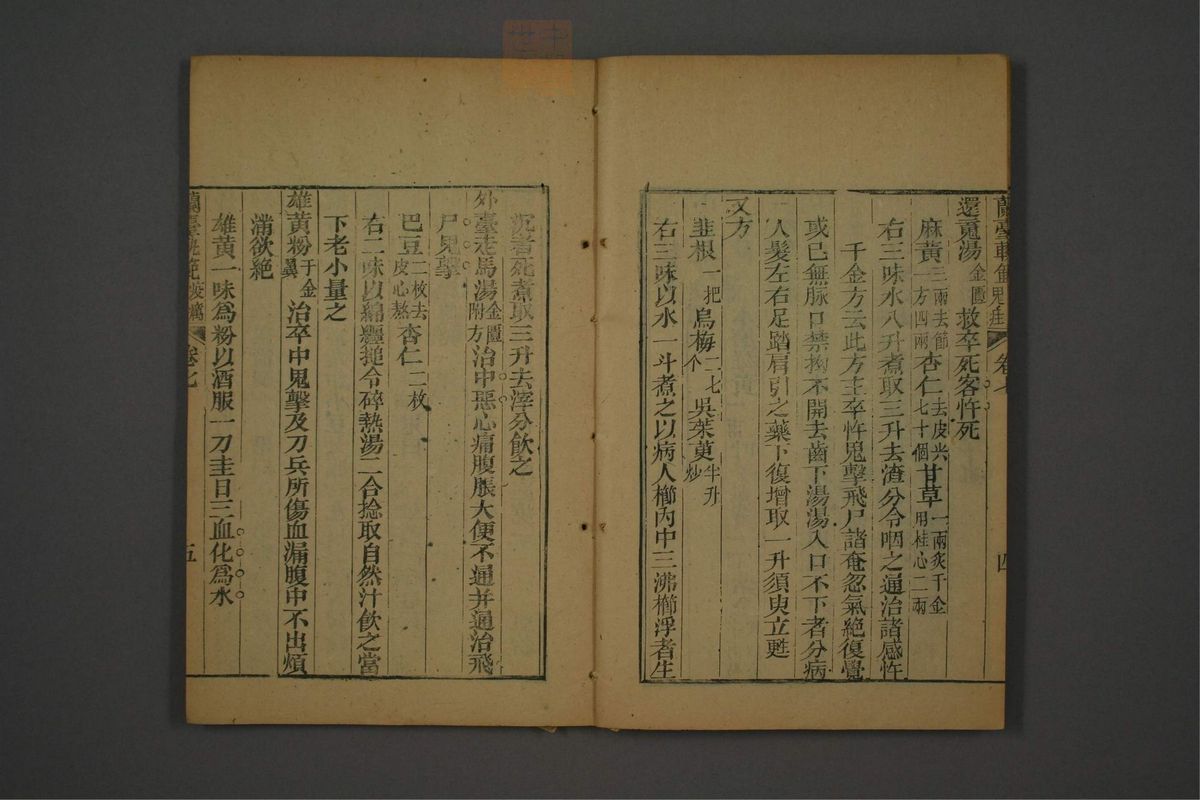 蘭臺軌範 卷七 四
還䰟湯金匱救卒死客忤死
麻黄三兩去節一方四兩杏仁去皮尖七十個甘草一兩炙千金用桂心二兩
右三味水八升煮取三升去渣分令咽之通治諸感忤
千金方云此方主卒忤鬼擊飛尸諸奄忽氣絶復覺
或已無脉口禁拗不開去齒下湯湯入口不下者分病
人髮左右足踏肩引之藥下復增取一升須臾立甦
又方
韭根一把烏梅二七个吳茱萸半升炒
右三味以水一斗煮之以病人櫛内中三沸櫛浮者生
沉者死煮取三升去滓分飲之
外臺走馬湯金匱附方治中惡心痛腹脹大便不通并通治飛
尸鬼擊
巴豆二枚去皮心熬杏仁二枚
右二味以綿纒搥令碎熱湯二合捻取自然汁飲之當
下老小量之
雄黄粉千金翼治卒中鬼擊及刀兵所傷血漏腹中不出煩
滿欲絶
雄黄一味為粉以酒服一刀圭日三血化為水
卷七 五